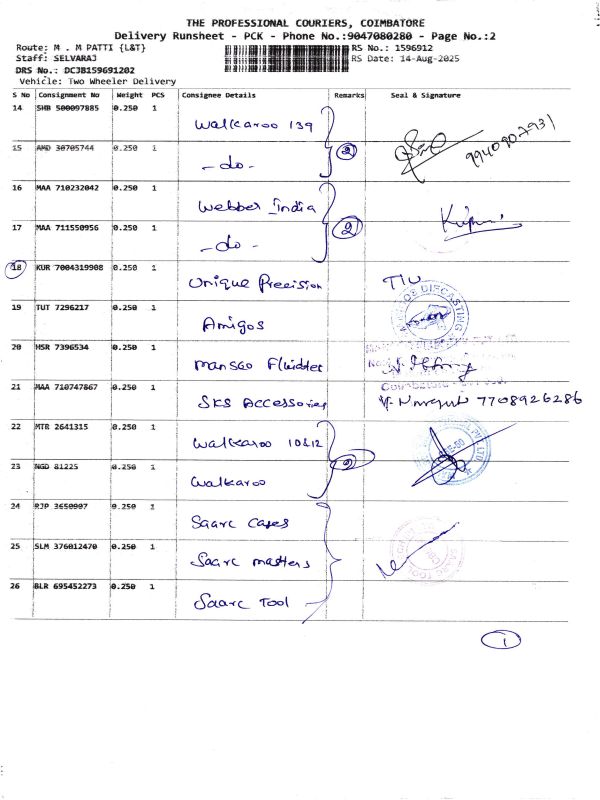 THE PROFESSIONAL COURIERS, COIMBATORE
Delivery Runsheet - PCK - Phone No.:9047080280 - Page No.:2
Route: M . M PATTI {L&T} RS No.: 1596912
Staff: SELVARAJ RS Date: 14-Aug-2025
DRS No.: DCJB159691202
Vehicle: Two Wheeler Delivery
S No Consignment No Weight PCS Consignee Details Remarks Seal & Signature
14 SHB 500097885 0.250 1
Walkaroo 139
15 AMD 30705744 0.250 1 2 9940907931
- do -
16 MAA 710232042 0.250 1
Webber India
17 MAA 711550956 0.250 1 2
- do -
18 KUR 7004319908 0.250 1
Unique Precision
19 TUT 7296217 0.250 1
Amigos
20 HSR 7396534 0.250 1
21 MAA 710747867 0.250 1
SKS Accessories 7708926286
22 MTR 2641315 0.250 1
Walkaroo 10&12
23 NGD 81225 0.250 1
Walkaroo
24 RJP 3650907 0.250 1
Saarc
25 SLM 376012470 0.250 1
Saarc masters
26 BLR 695452273 0.250 1
Saarc Tool
1